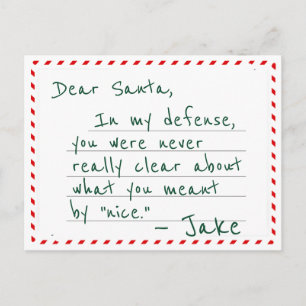 Dear Santa,
In my defense,
you were never
really clear about
what you meant
by "nice."
– Jake